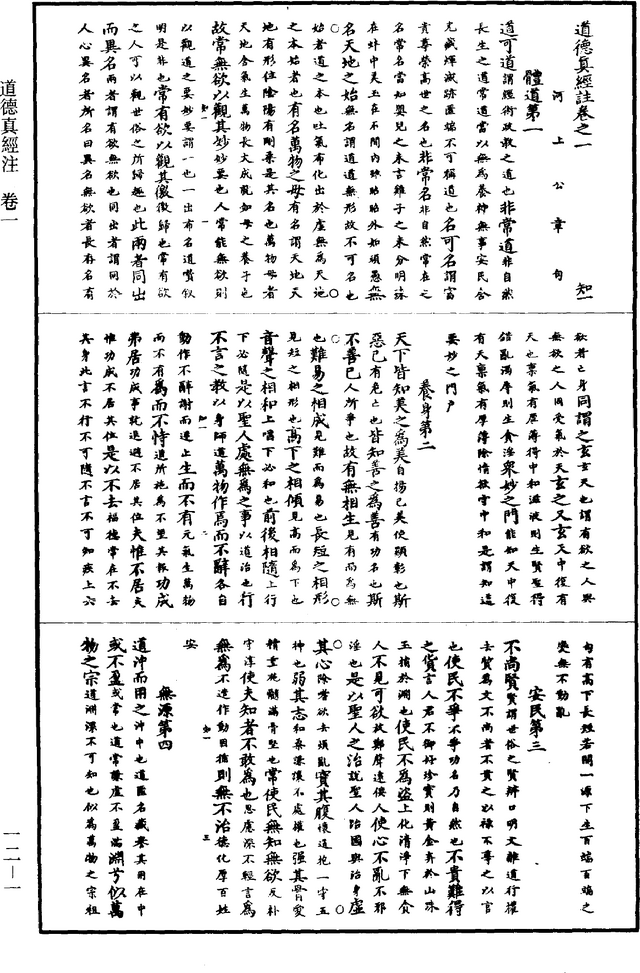 道德真經註卷之一
河上公章句 知一
體道第一
道可道謂經術政教之道也非常道非自然
長生之道常道當以無為養神無事安民含
光藏暉滅跡匿端不可稱道也名可名謂富
貴尊榮高世之名也非常名非自然常在之
名常名當如嬰兒之未言雞子之未分明珠
在蚌中美玉在石間內雖昭昭外如頑愚無
名天地之始無名謂道道無形故不可名也
始者道之本也吐氣布化出於虛無為天地
之本始者也有名萬物之母有名謂天地天
地有形位陰陽有剛柔是其名也萬物母者
天地含氣生萬物長大成就如母之養子也
故常無欲以觀其妙妙要也人常能無欲則
知一 一
以觀道之要妙要謂一也一出布名道贊叙
明是非也常有欲以觀其徼徼歸也常有欲
之人可以觀世俗之所歸趣也此兩者同出
而異名兩者謂有欲無欲也同出者謂同於
人心異名者所名曰異名無欲者長存名有
欲者亡身同謂之玄玄天也謂有欲之人與
無欲之人同受氣於天玄之又玄天中復有
天也稟氣有厚薄得中和滋液則生賢聖得
錯亂濁辱則生貪淫衆妙之門能知天中復
有天稟氣有厚薄除情欲守中和是謂知道
要妙之門戶
養身第二
天下皆知美之為美自揚己美使顯彰也斯
惡已有危亡也皆知善之為善有功名也斯
不善已人所爭也故有無相生見有而為無
也難易之相成見難而為易也長短之相形
見短之相形也高下之相傾見高而為下也
音聲之相和上唱下必和也前後相隨上行
下必隨是以聖人處無為之事以道治也行
不言之教以身師道萬物作焉而不辭各自
知一 二
動作不辭謝而逆止生而不有元氣生萬物
而不有為而不恃道所施為不望其報功成
弗居功成事就退避不居其位夫惟不居夫
惟功成不居其位是以不去福德常在不去
其身此言不行不可隨不言不可知疾上六
句有高下長短君開一源下生百端百端之
變無不動亂
安民第三
不尚賢賢謂世俗之賢辯口明文離道行權
去質為文不尚者不貴之以祿不尊之以官
也使民不爭不爭功名乃自然也不貴難得
之貨言人君不御好珍寶則黃金弃於山珠
玉捐於淵也使民不為盜上化清淨下無貪
人不見可欲放鄭聲遠佞人使心不亂不邪
淫也是以聖人之治說聖人治國與治身虛
其心除嗜欲去煩亂實其腹懷道抱一守五
神也弱其志和柔謙讓不處權也强其骨愛
精重施髓滿骨堅也常使民無知無欲反朴
守淳使夫知者不敢為也思慮深不輕言為
無為不造作動因循則無不治德化厚百姓
知一 三
安
無源第四
道沖而用之沖中也道匿名藏譽其用在中
或不盈或常也道常謙虛不盈滿淵兮似萬
物之宗道淵深不可知也似為萬物之宗祖
道德真經注 卷一
一二—一